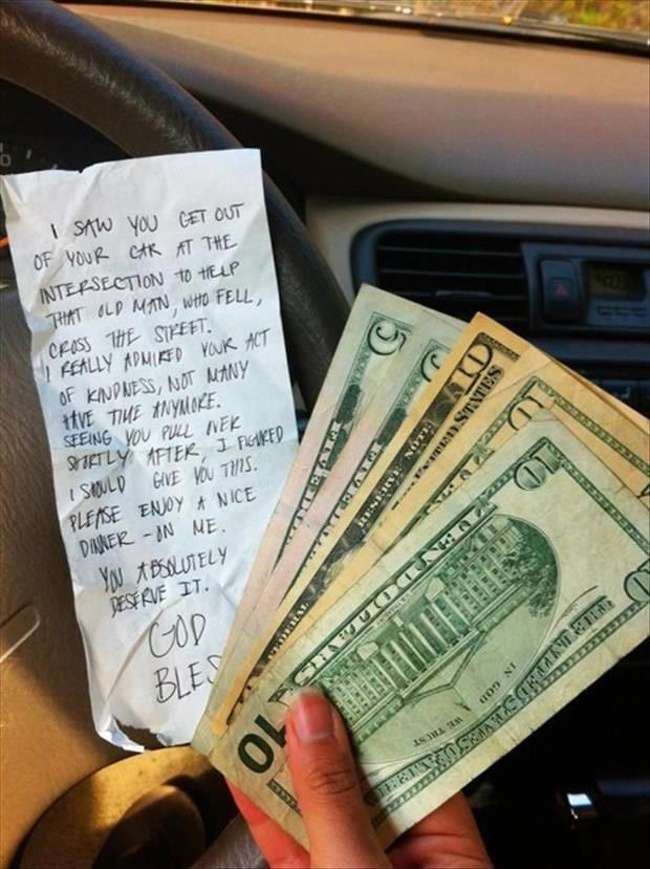 I SAW YOU GET OUT
OF YOUR CAR AT THE
INTERSECTION TO HELP
THAT OLD MAN, WHO FELL,
CROSS THE STREET.
I REALLY ADMIRED YOUR ACT
OF KINDNESS, NOT MANY
HAVE TIME ANYMORE.
SEEING YOU PULL OVER
SHRTLY AFTER, I FIGURED
I SHOULD GIVE YOU THIS.
PLEASE ENJOY A NICE
DINNER - ON ME.
YOU ABSOLUTELY
DESERVE IT.
GOD
BLES
10
RESERVE NOTE
FEDERAL
10
IN GOD
WE TRUST
THE UNITED STATES OF